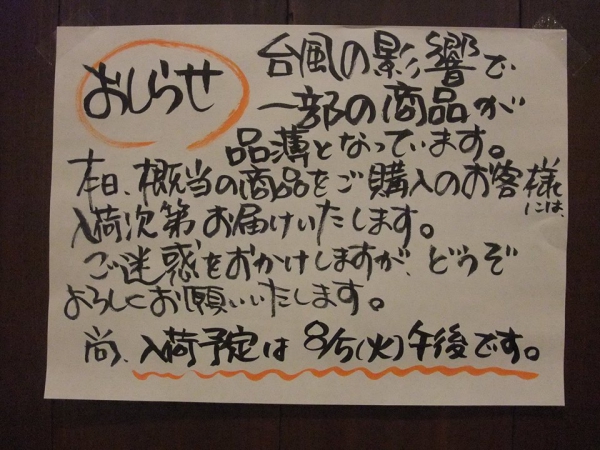 おしらせ
台風の影響で
一部の商品が
品薄となっています。
本日、概当の商品をご購入のお客様には、
入荷次第お届けいたします。
ご迷惑をおかけしますが、どうぞ
よろしくお願いいたします。
尚、入荷予定は8/5(火)午後です。